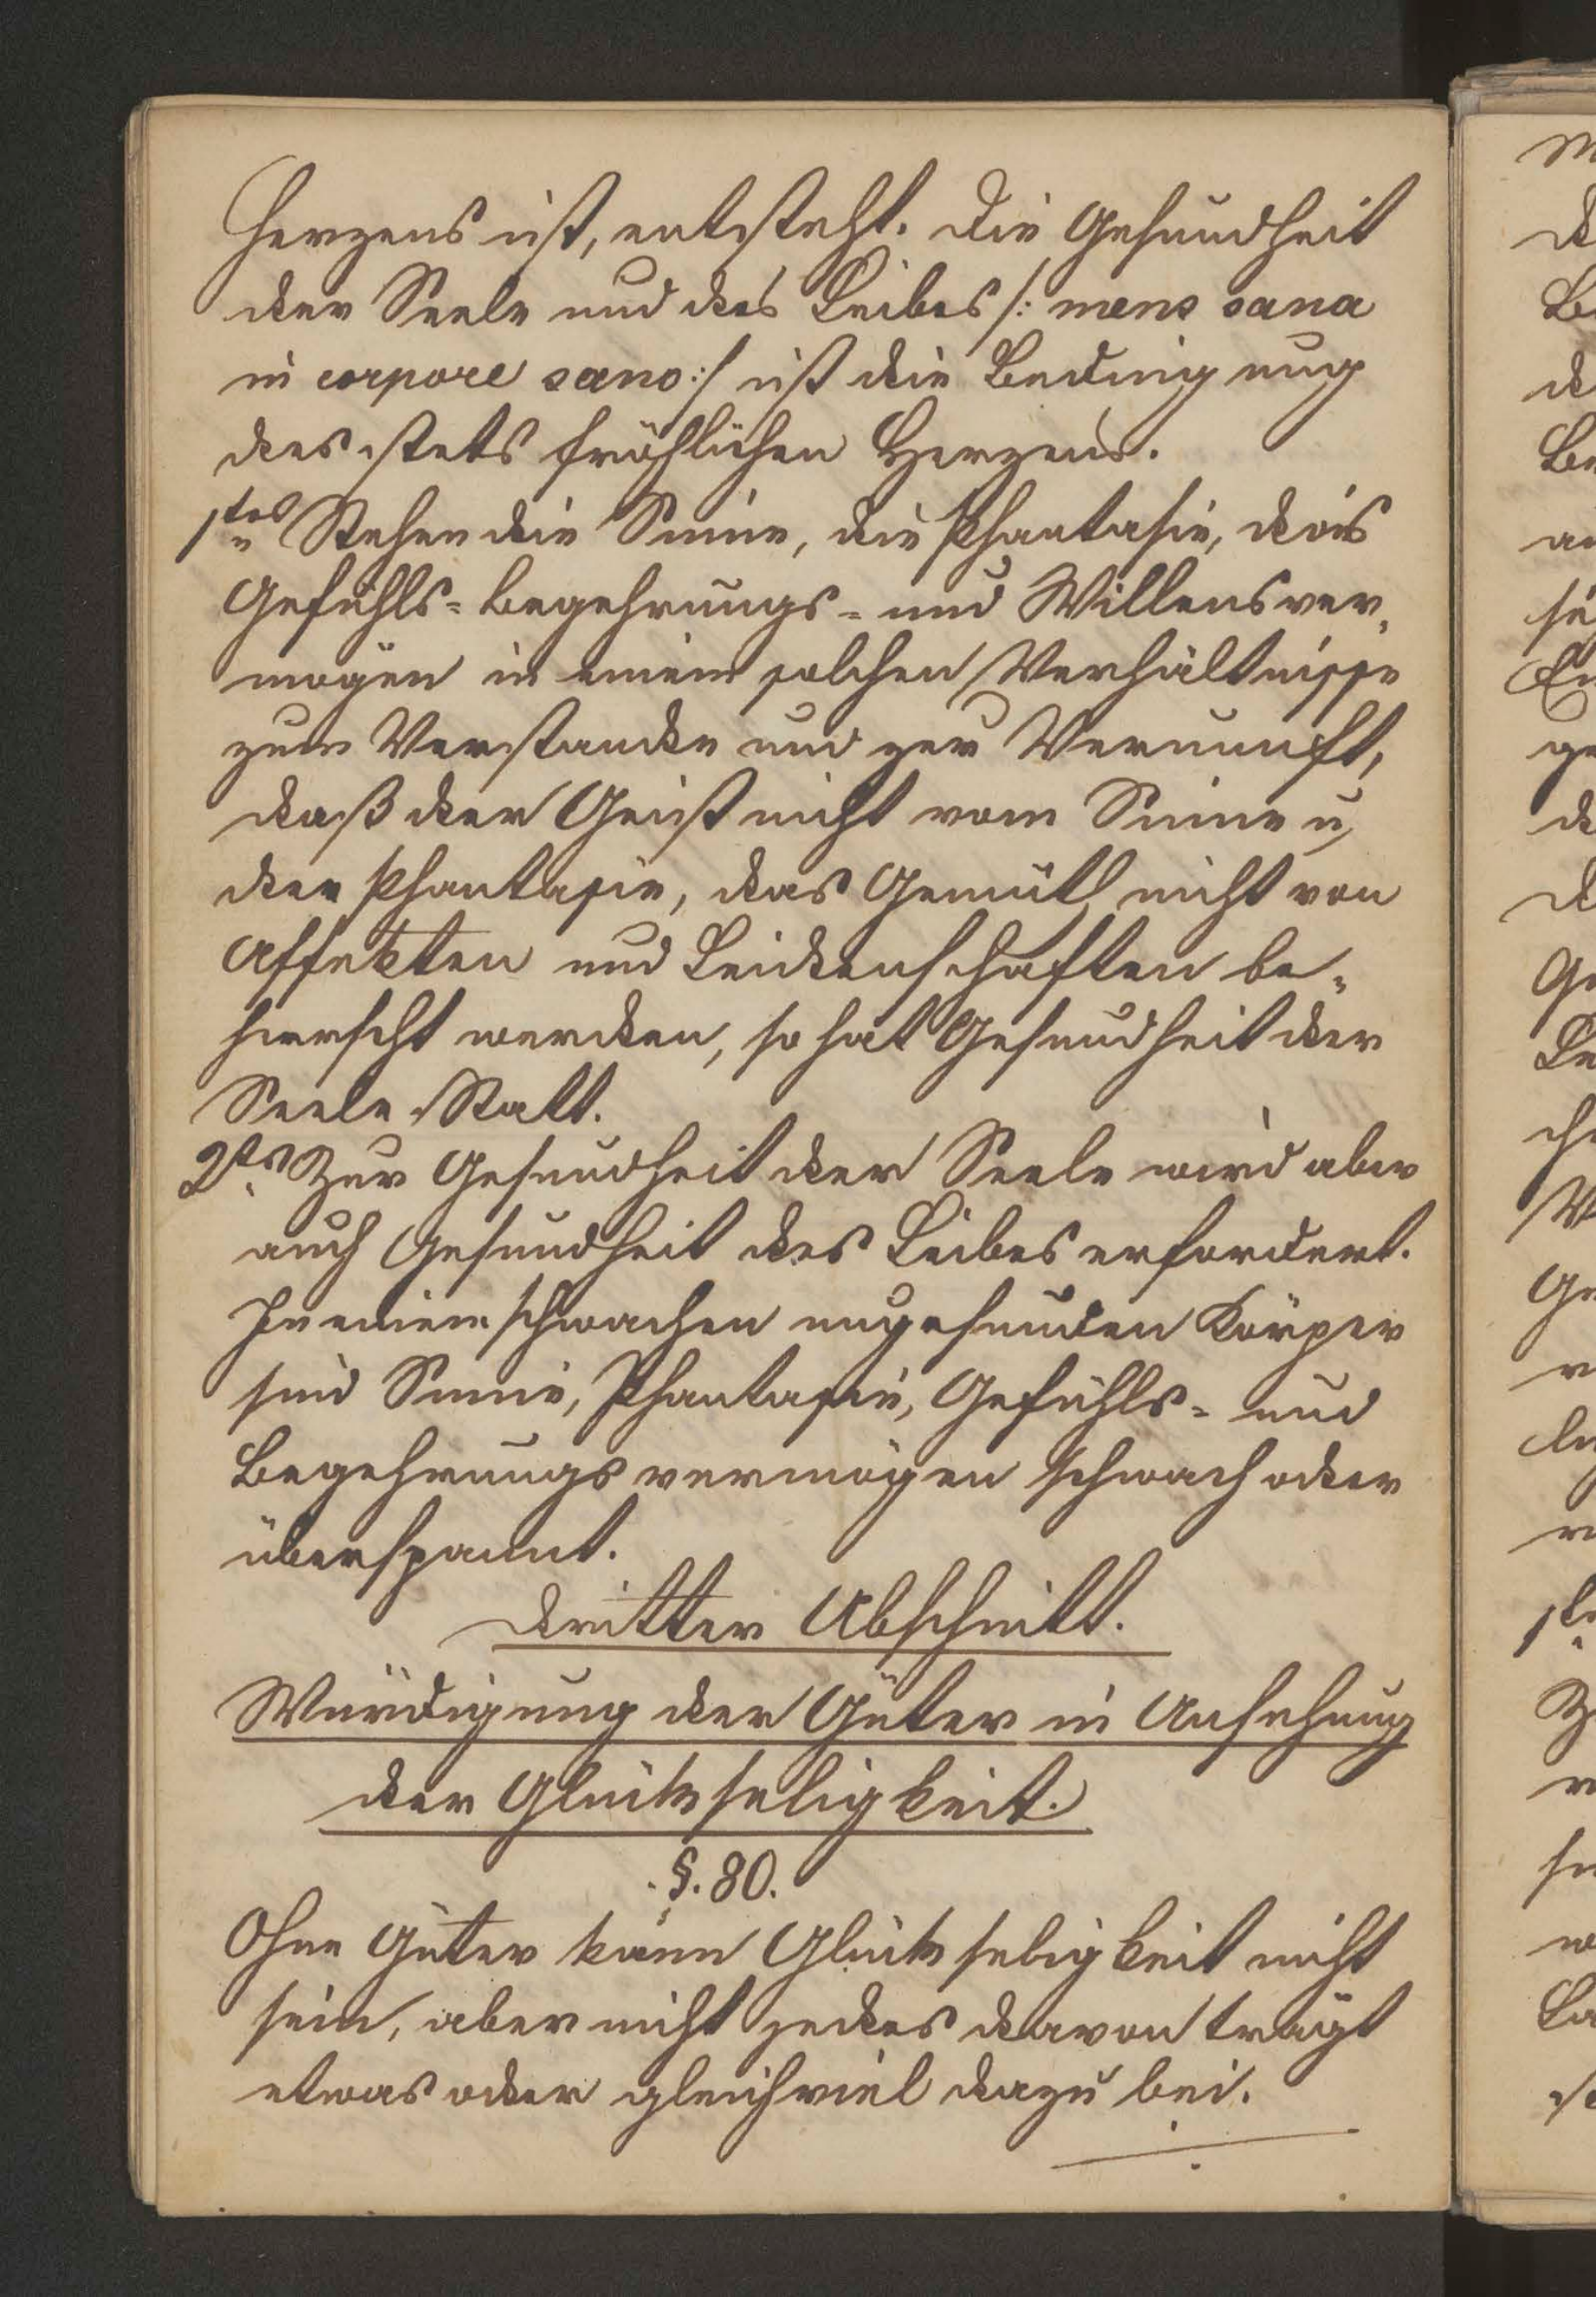 Herzens ist, entsteht. Die Gesundheit
der Seele und des Leibes /: mens sana
in corpore sano :/ ist die Bedingung
des stets fröhlichen Herzens.
1tes Stehen die Sinne, die Phantasie, das
Gefühls- Begehrungs- und Willensver-
mögen in einem solchen Verhältnisse
zum Verstande und zur Vernunft,
daß der Geist nicht vom Sinne u,
der Phantasie, das Gemüth nicht von
Affekten und Leidenschaften be-
herrscht werden, so hat Gesundheit der
Seele Statt.
2tes Zur Gesundheit der Seele wird aber
auch Gesundheit des Leibes erfordert.
In einem schwachen ungesunden Körper
sind Sinne, Phantasie, Gefühls- und
Begehrungsvermögen schwach oder
überspannt.
Dritter Abschnitt.
Würdigung der Güter in Ansehung
der Glückseligkeit.
§. 80.
Ohne Güter kann Glückseligkeit nicht
sein, aber nicht jedes davon trägt
etwas oder gleichviel dazu bei.